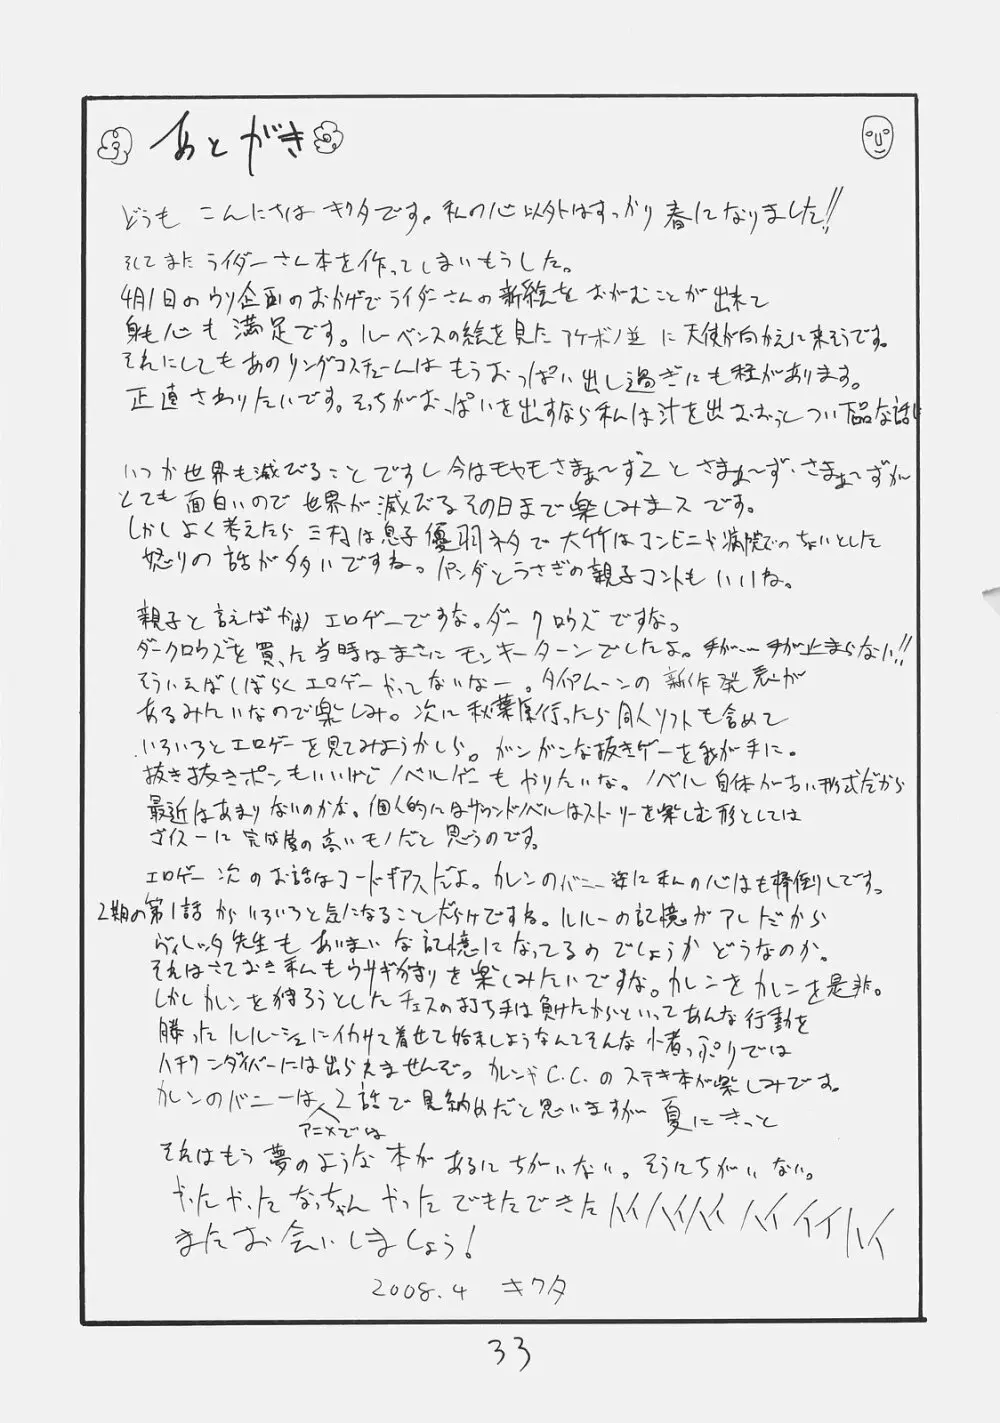 あとがき
どうも こんにちは キクタです。私の心以外はすっかり春になりました!!
そしてまた ライダーさん本を作ってしまいもうした。
4月1日のウソ企画のおかげでライダーさんの新絵をおがむことが出来て
身も心も満足です。ルーベンスの絵を見た アケボノ並に天使が向かえに来そうです。
それにしてもあのリングコスチュームはもうおっぱい出し過ぎにも程があります。
正直さわりたいです。そっちがおっぱいを出すなら私は汁を出おおっとつい下品な話に
いつか世界も滅びることですし今はモヤモヤさまぁ〜ず2とさまぁ〜ず・さまぁ〜ずが
とても面白いので世界が滅びるその日まで楽しみまスです。
しかしよく考えたら三村は息子優羽ネタで大竹はコンビニや病院でのちょいとした
怒りの話が多いですね。パンダとうさぎの親子コントもいいね。
親子と言えばかほり エロゲーですな。ダークロウズですな。
ダークロウズを買った当時はまさにモンキーターンでしたよ。手が…手が止まらない!!
そういえばしばらくエロゲーやってないなー。タイプムーンの新作発表が
あるみたいなので楽しみ。次に秋葉原行ったら同人ソフトも含めて
いろいろとエロゲーを見てみようかしら。ガンガンな抜きゲーを我が手に。
抜き抜きポンもいいけどノベルゲーもやりたいな。ノベル自体が古い形式だから
最近はあまりないのかな。個人的にはサウンドノベルはストーリーを楽しむ形としては
さいスーに完成度の高いモノだと思うのです。
エロゲー次のお話はコードギアスだよ。カレンのバニー姿に私の心はも棒倒しです。
2期の第1話からいろいろと気になることだらけですね。ルルーの記憶がアレだから
ヴィレッタ先生もあいまいな記憶になってるのでしょうかどうなのか。
それはさておき私もウサギ狩りを楽しみたいですな。カレンをカレンを是非。
しかしカレンを狩ろうとしたチェスの打ち手は負けたからといってあんな行動を
勝ったルルーシュにイカサマ着せて始末しようなんてそんな小者っぷりでは
ハチワンダイバーには出らえませんぞ。カレンやC.C.のステキ本が楽しみです。
カレンのバニーはアニメでは2話で見納めだと思いますが夏にきっと
それはもう夢のような本があるにちがいない。そうにちがいない。
やったやったなっちゃんやったできたできたハイハイハイハイイイハイ
またお会いしましょう!
2008.4 キクタ
33